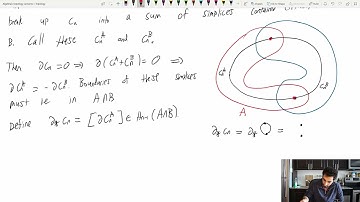 break up Cₙ into a sum of simplices contained
B. Call these Cₙᴬ and Cₙᴮ.
Then ∂Cₙ = 0 ⟹ ∂(Cₙᴬ + Cₙᴮ) = 0 ⟹
∂Cₙᴬ = -∂Cₙᴮ Boundaries of these simplices
must lie in A∩B
Define ∂⁎ Cₙ = [∂Cₙᴬ] ∈ Hₙ₋₁(A∩B)
Cₙᴬ
Cₙᴮ
A
∂⁎ Cₙ = ∂⁎ ◯ = :